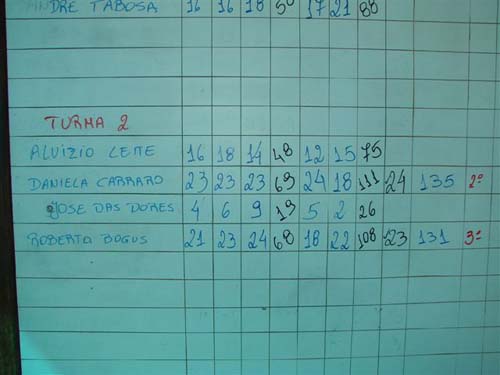 ANDRE TABOSA 16 16 18 50 17 21 88
TURMA 2
ALUIZIO LEITE 16 18 14 48 12 15 75
DANIELA CARRARO 23 23 23 69 24 18 111 24 135 2º
JOSE DAS DORES 4 6 9 19 5 2 26
ROBERTO BOGUS 21 23 24 68 18 22 108 23 131 3º